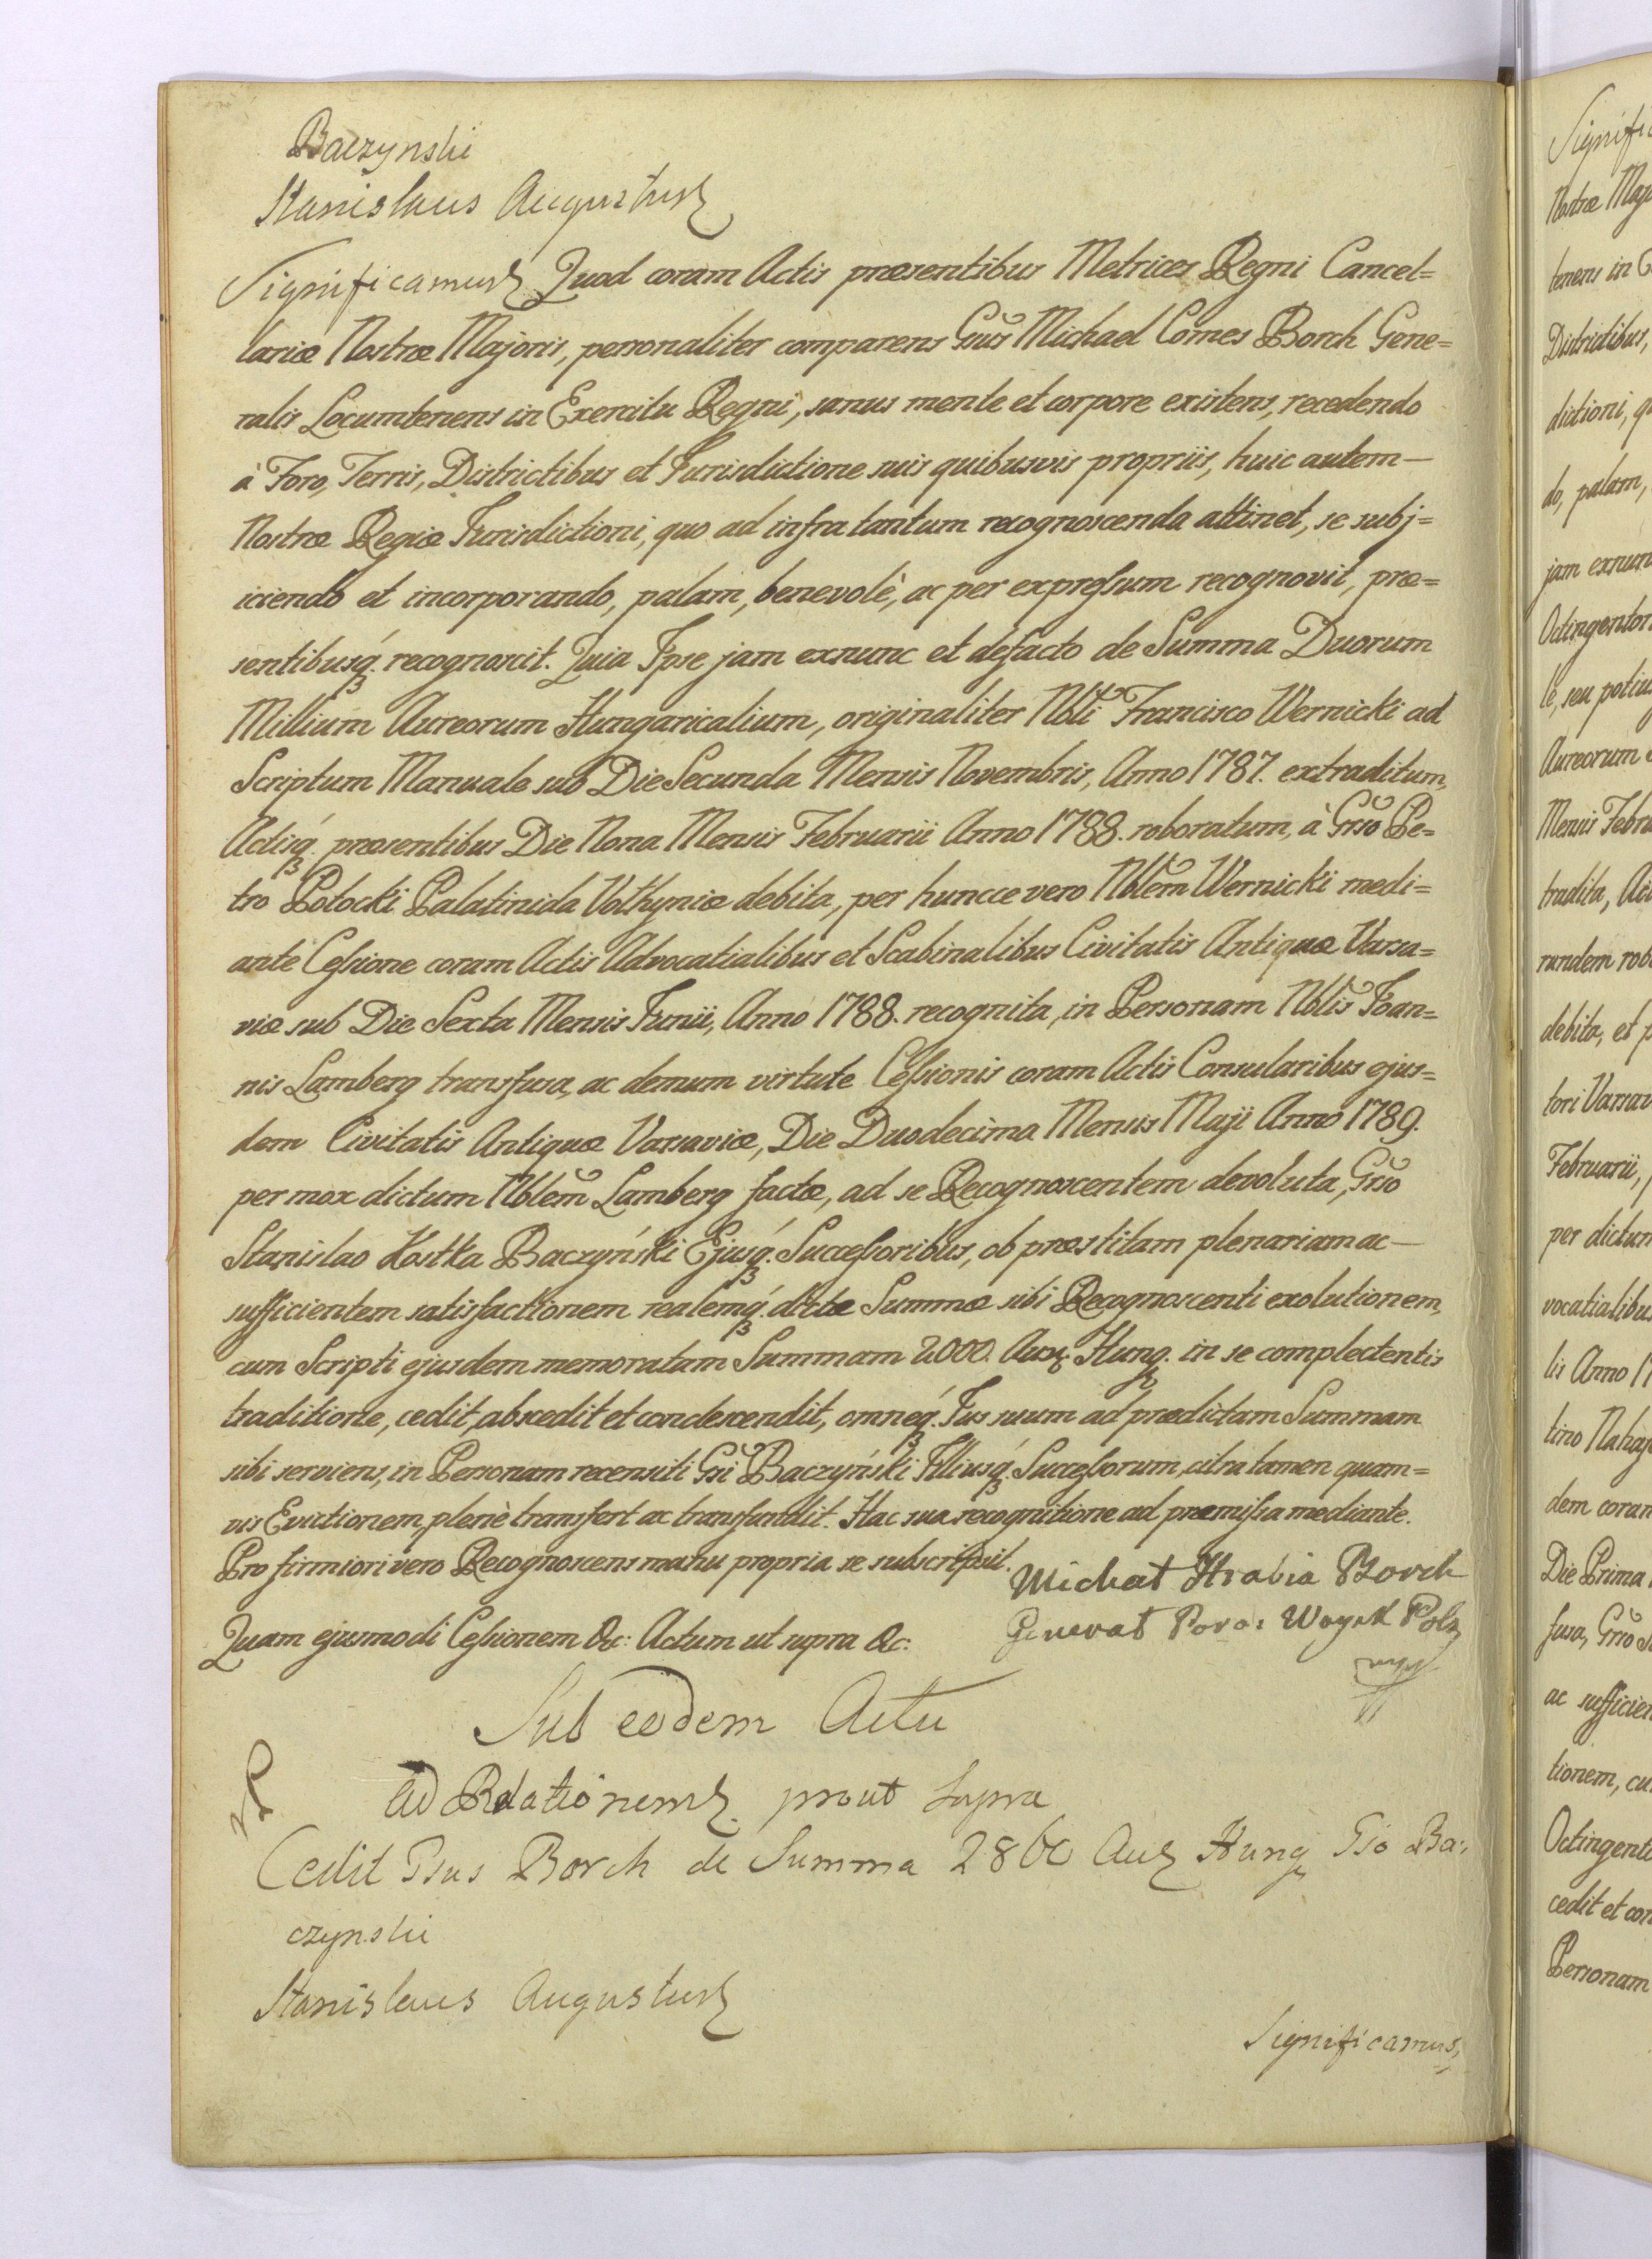 Baczynski
Stanislaus Augustus
Significamus Quod coram Actis præsentibus Metrices Regni Cancel=
lariæ Nostræ Majoris, personaliter comparens Gsus Michael Comes Borch Gene=
ralis Locumtenens in Exercitu Regni, sanus mente et corpore existens, recedendo
à Foro, Terris, Districtibus et Jurisdictione suis quibusvis propriis, huic autem —
Nostræ Regiæ Jurisdictioni, quo ad infra tantum recognoscenda attinet, se subj=
iciendo et incorporando, palam, benevolè, ac per expressum recognovit, præ=
sentibusq́. recognoscit. Quia Ipse jam exnunc et defacto de Summa Duorum
Millium Aureorum Hungaricalium, originaliter Nbli Francisco Wernicki ad
Scriptum Manuale sub Die Secunda Mensis Novembris, Anno 1787. extraditum,
Actisq́. præsentibus Die Nona Mensis Februarii Anno 1788. roboratum, à Grso Pe=
tro Potocki Palatinida Volhyniæ debita, per huncce vero Nblem Wernicki medi=
ante Cessione coram Actis Advocatialibus et Scabinalibus Civitatis Antiquæ Varsa=
viæ sub Die Sexta Mensis Junii, Anno 1788. recognita, in Personam Nblis Joan=
nis Lamberg transfusa, ac demum virtute Cessionis coram Actis Consularibus ejus=
dem Civitatis Antiquæ Varsaviæ, Die Duodecima Mensis Maji Anno 1789.
per mox dictum Nblem Lamberg factæ, ad se Recognoscentem devoluta, Grso
Stanislao Kostka Baczyński Ejusq́. Successoribus, ob præstitam plenariam ac —
sufficientem satisfactionem realemq́. dictæ Summæ sibi Recognoscenti exolutionem,
cum Scripti ejusdem memoratam Summam 2000. Aur Hung. in se complectentis
traditione, cedit, abscedit et condescendit, omneq́. Jus suum ad prædictam Summam
sibi serviens, in Personam recensiti Gsi Baczyński Illiusq́. Successorum, citra tamen quam=
vis Evictionem, plenè transfert ac transfundit. Hac sua recognitione ad præmissa mediante.
Pro firmiori vero Recognoscens manu propria se subscripsit.
Michał Hrabia Borch
Generał Poro: Woysk Polz
mpp
Quam ejusmodi Cessionem &c: Actum ut supra &c:
Sub eodem Actu
Ad Relationem prout supra
Cedit Gsus Borch de Summa 2800 Aur Hung Gso Ba:
czynski
Stanislaus Augustus
Significamus,